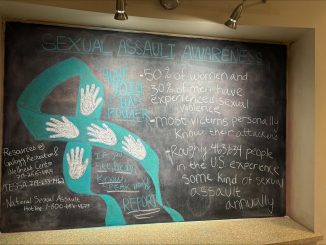 SEXUAL ASSAULT AWARENESS
YOUR
VOICE
HAS
POWER
-50% of women and
30% of men have
experienced sexual
violence
-most victims personally
know their attackers
-Roughly 463,634 people
in the US experience
some kind of sexual
assault
annually
IF YOU
SEE
Know
SPEAK
REPORT
Resources:
Recreation &
Wellness Center
TESSA
National Sexual Assault
Hotline 1-800-656-4673